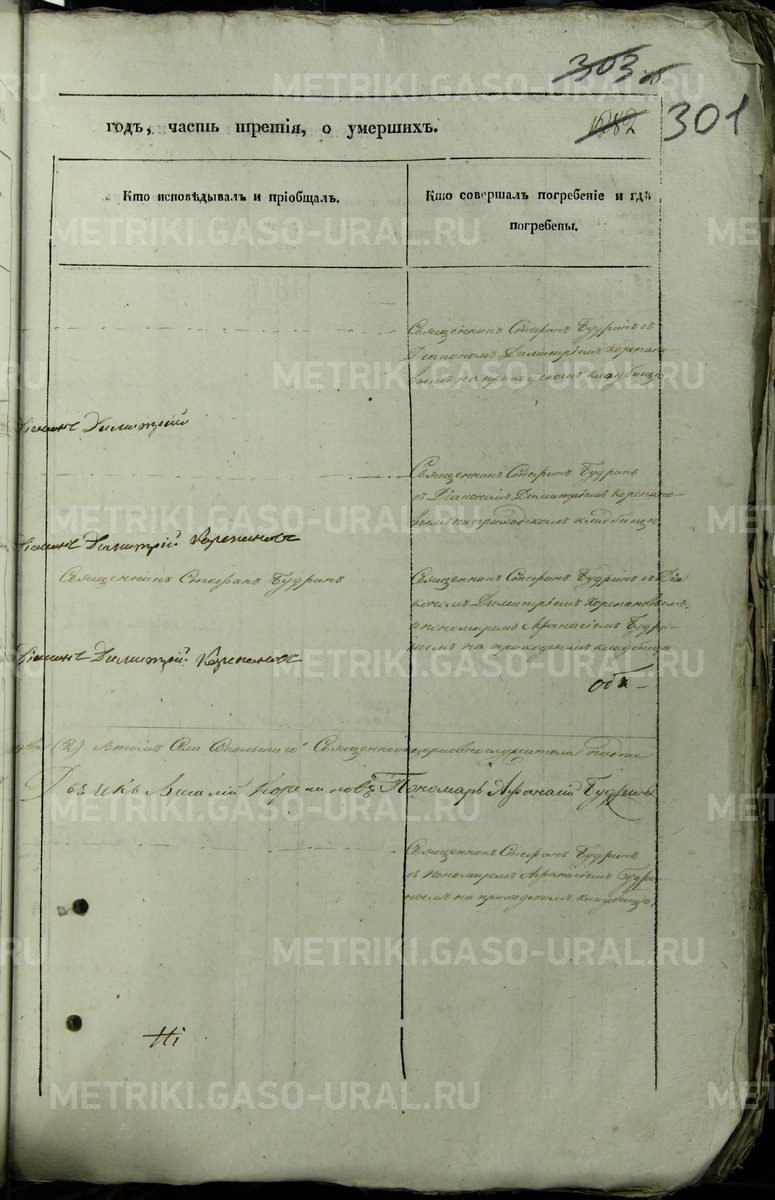 303
1282
301
годъ, часть третія, о умершихъ.
Кто исповѣдывалъ и пріобщалъ.
Кто совершалъ погребеніе и гдѣ
погребены.
Священникъ Стефанъ Будринъ съ
Діакономъ Димитріемъ Корепано-
вымъ на приходскомъ кладбищѣ
Діаконъ Димитрій
Священникъ Стефанъ Будринъ
съ Діакономъ Димитріемъ Корепано-
вымъ на приходскомъ кладбищѣ
Діаконъ Димитрій Корепановъ
Священникъ Стефанъ Будринъ
Священникъ Стефанъ Будринъ съ Діа
кономъ Димитріемъ Корепановымъ,
и пономаремъ Афанасіемъ Будри-
нымъ на приходскомъ кладбищѣ
Діаконъ Димитрій Корепановъ
оба
(2) въ томъ Села Сопольскаго Священноцерковнослужители
Дьячекъ Василій Корепановъ Пономарь Афанасій Будринъ
Священникъ Стефанъ Будринъ
съ пономаремъ Афанасіемъ Будри
нымъ на приходскомъ кладбищѣ.
METRIKI.GASO-URAL.RU